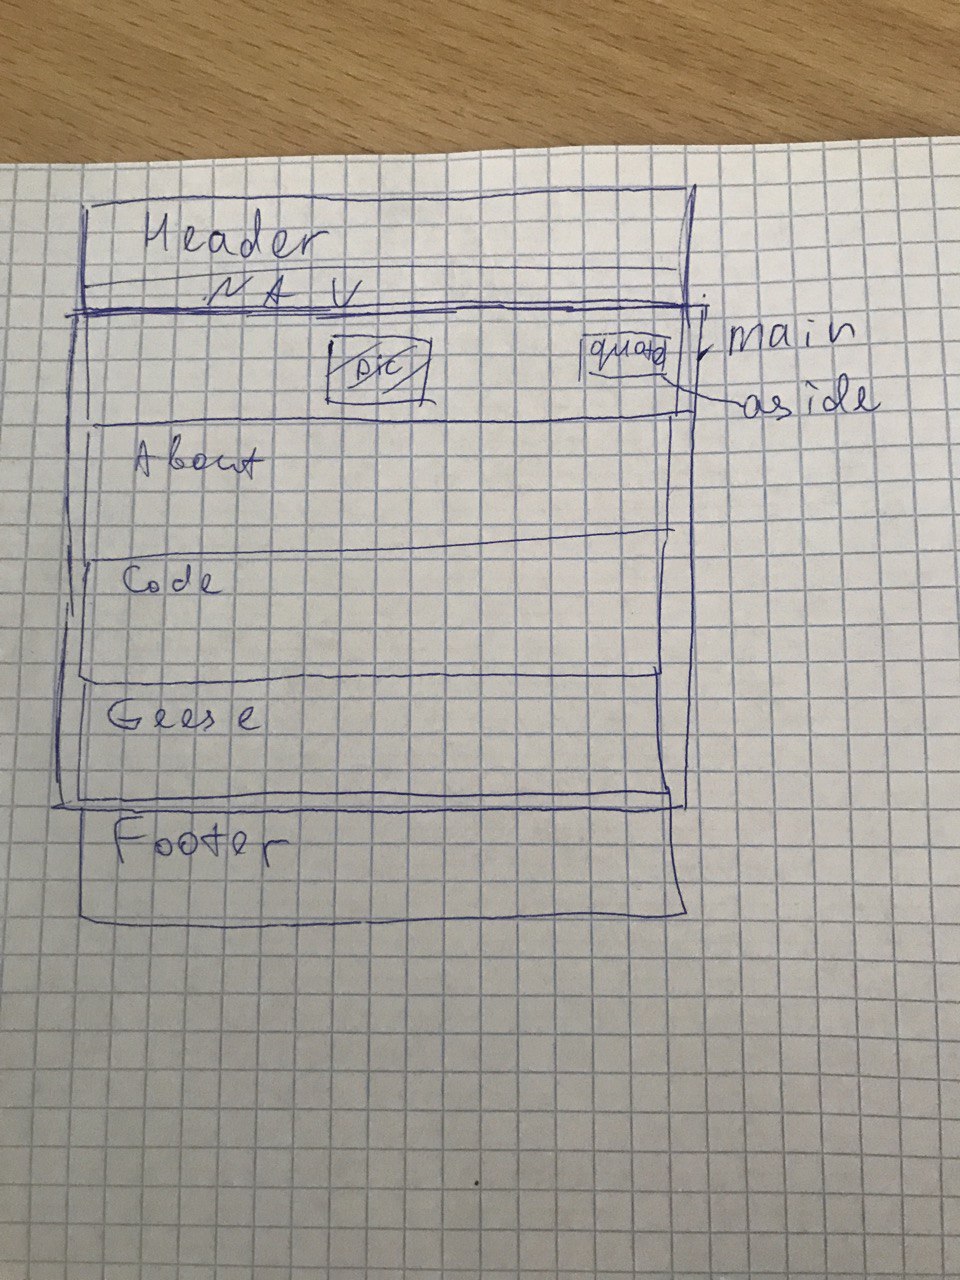 Header
NAV
pic
quote
main
aside
About
Code
Geese
Footer